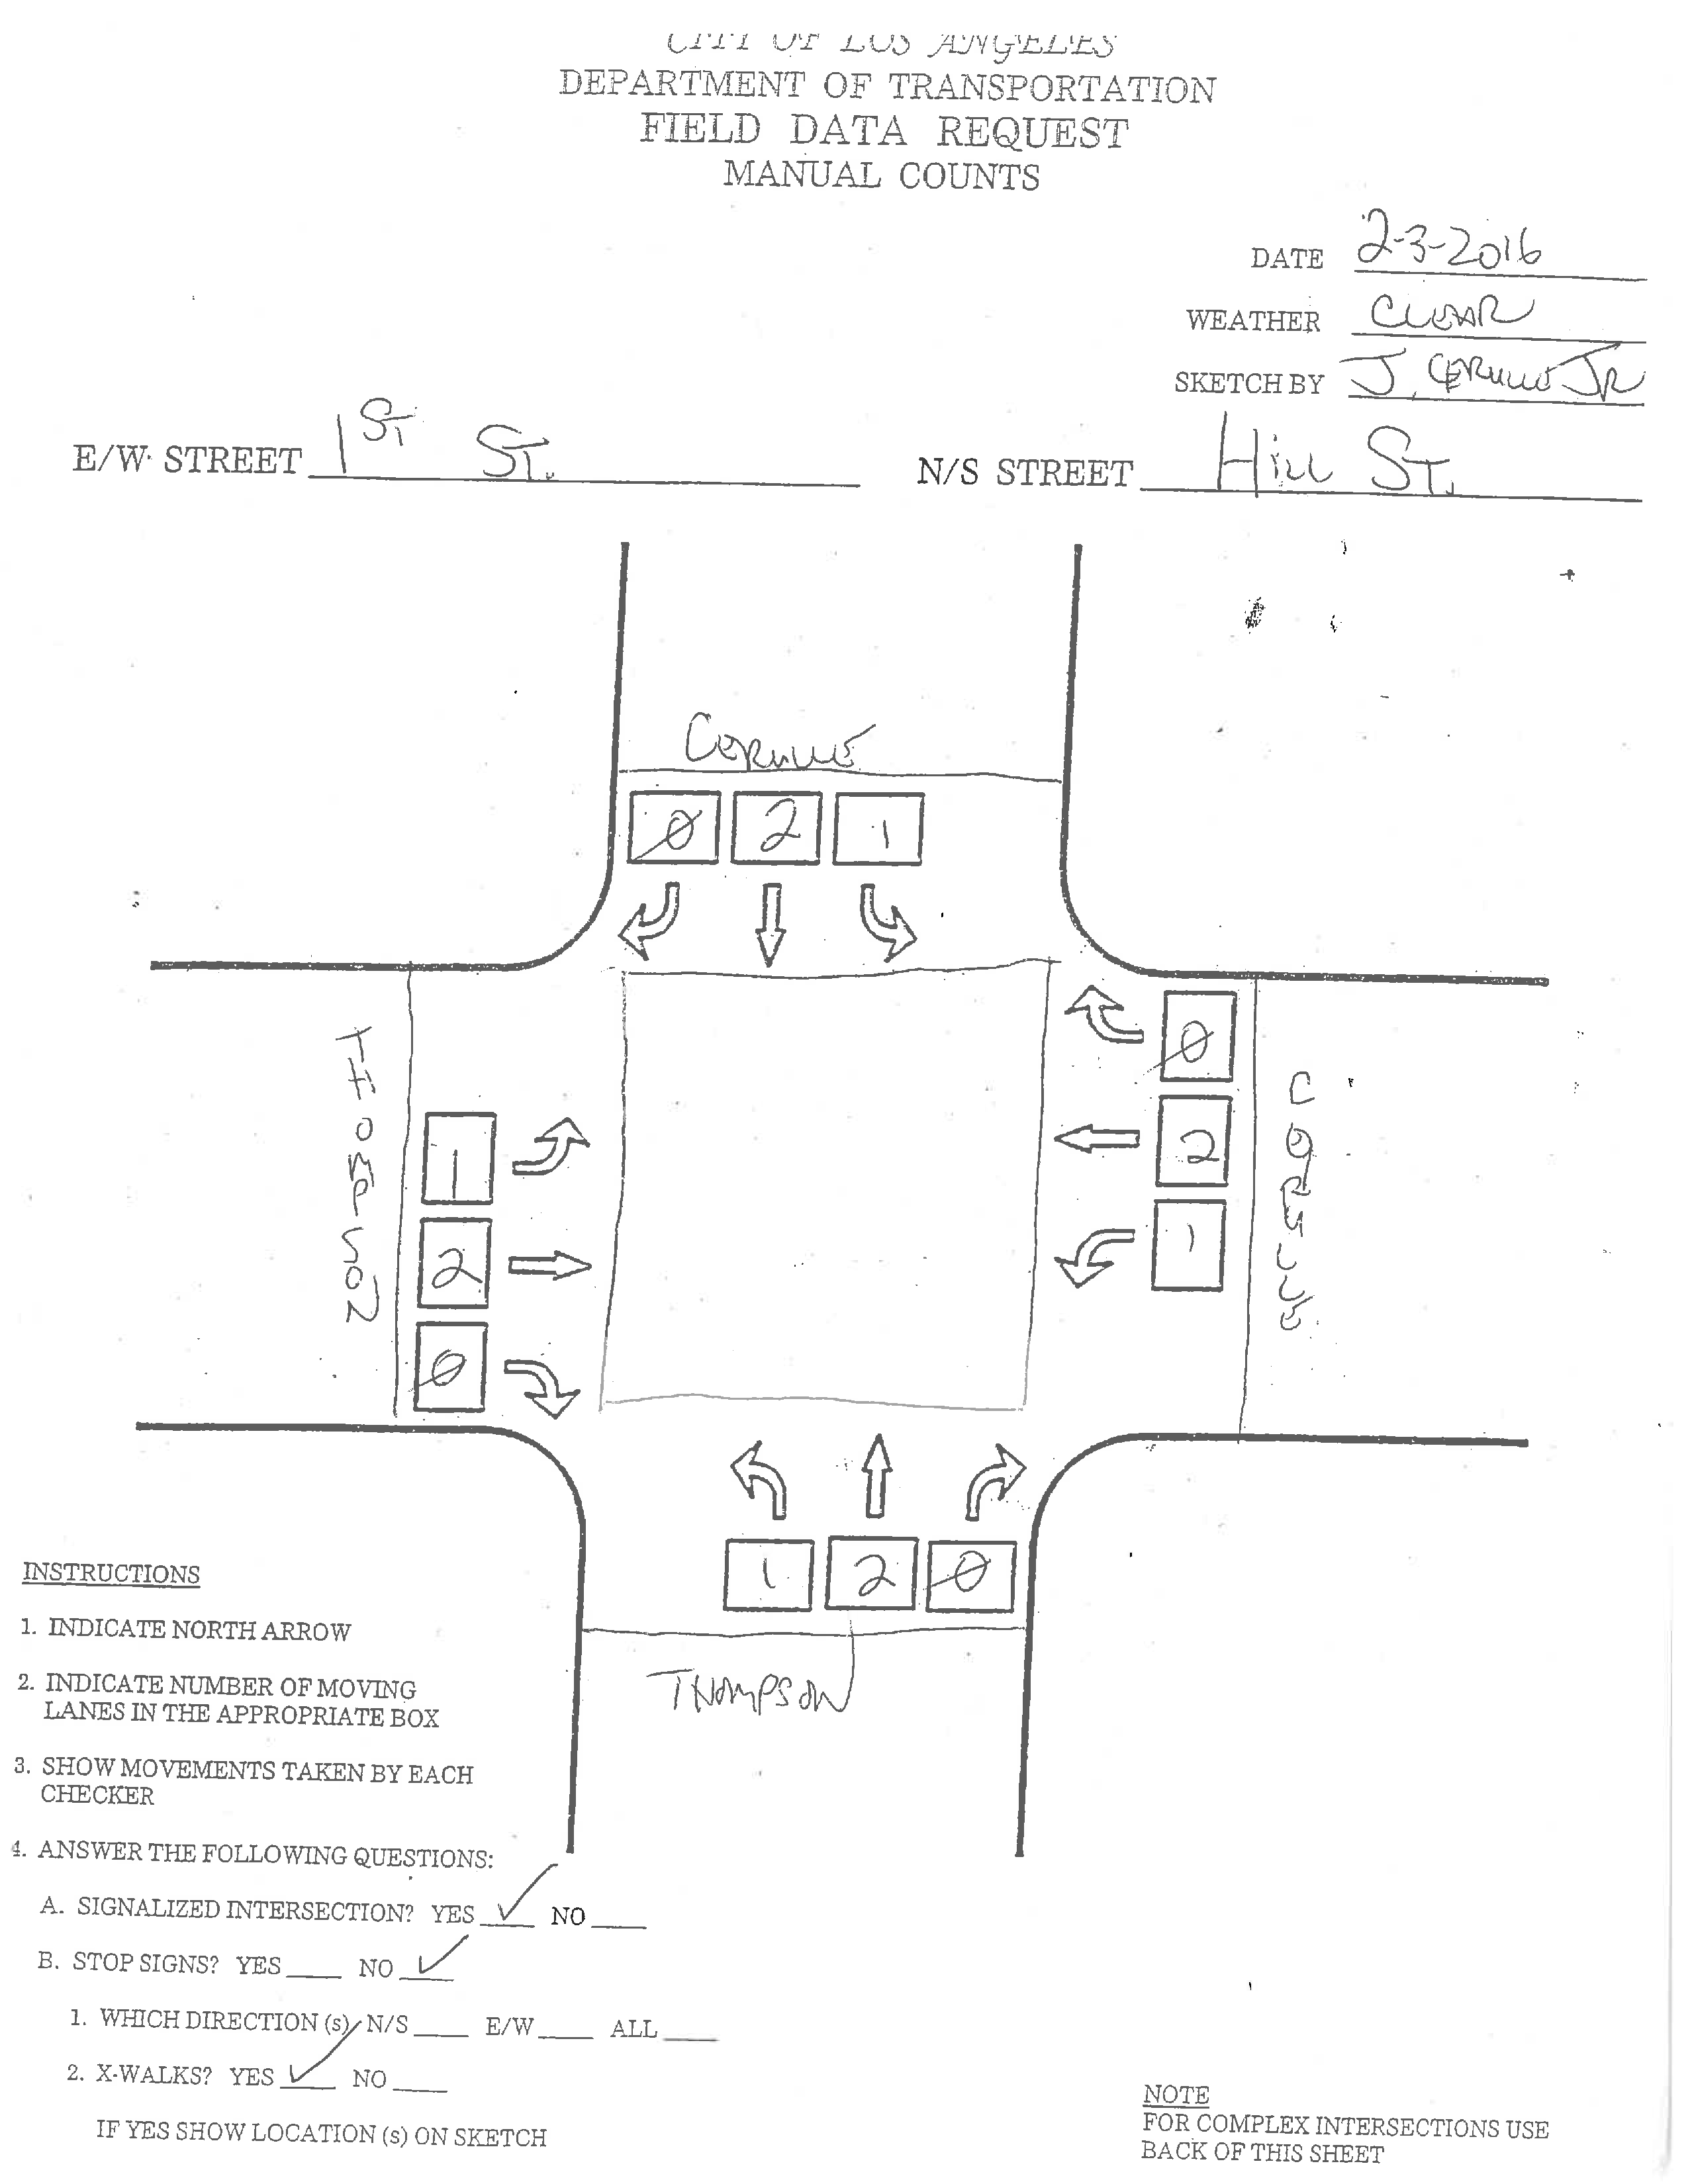 CITY OF LOS ANGELES
DEPARTMENT OF TRANSPORTATION
FIELD DATA REQUEST
MANUAL COUNTS
DATE 2-3-2016
WEATHER CLEAR
SKETCH BY J. JR
E/W STREET 1ST ST.
N/S STREET Hill ST.
Ø 2 1
Ø
2
1
THOMPSON
1
2
Ø
1 2 Ø
THOMPSON
INSTRUCTIONS
1. INDICATE NORTH ARROW
2. INDICATE NUMBER OF MOVING
LANES IN THE APPROPRIATE BOX
3. SHOW MOVEMENTS TAKEN BY EACH
CHECKER
4. ANSWER THE FOLLOWING QUESTIONS:
A. SIGNALIZED INTERSECTION? YES ✓ NO ____
B. STOP SIGNS? YES ____ NO ✓
1. WHICH DIRECTION (s) N/S ____ E/W ____ ALL ____
2. X-WALKS? YES ✓ NO ____
IF YES SHOW LOCATION (s) ON SKETCH
NOTE
FOR COMPLEX INTERSECTIONS USE
BACK OF THIS SHEET